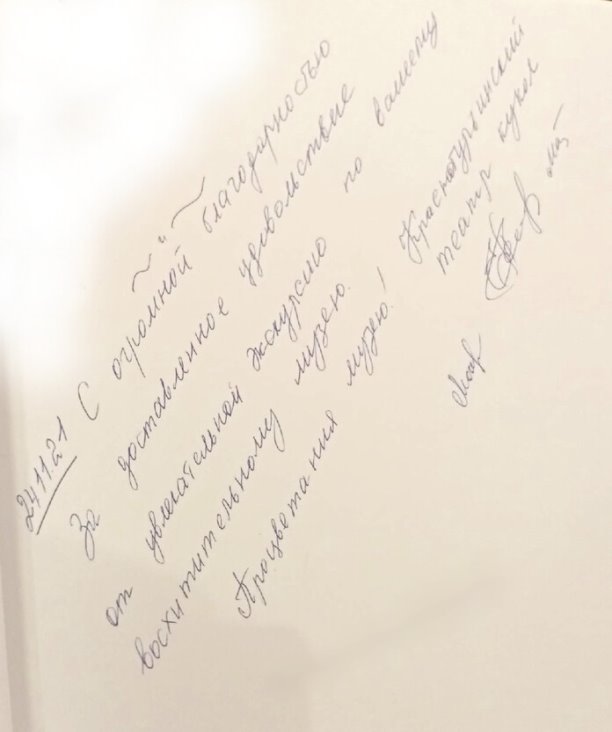 ~ " ~
24.11.21 С огромной благодарностью
За доставленное удовольствие
от увлекательной экскурсию по вашему
восхитительному музею.
Процветания музею!
Краснотурьинский
театр кукол